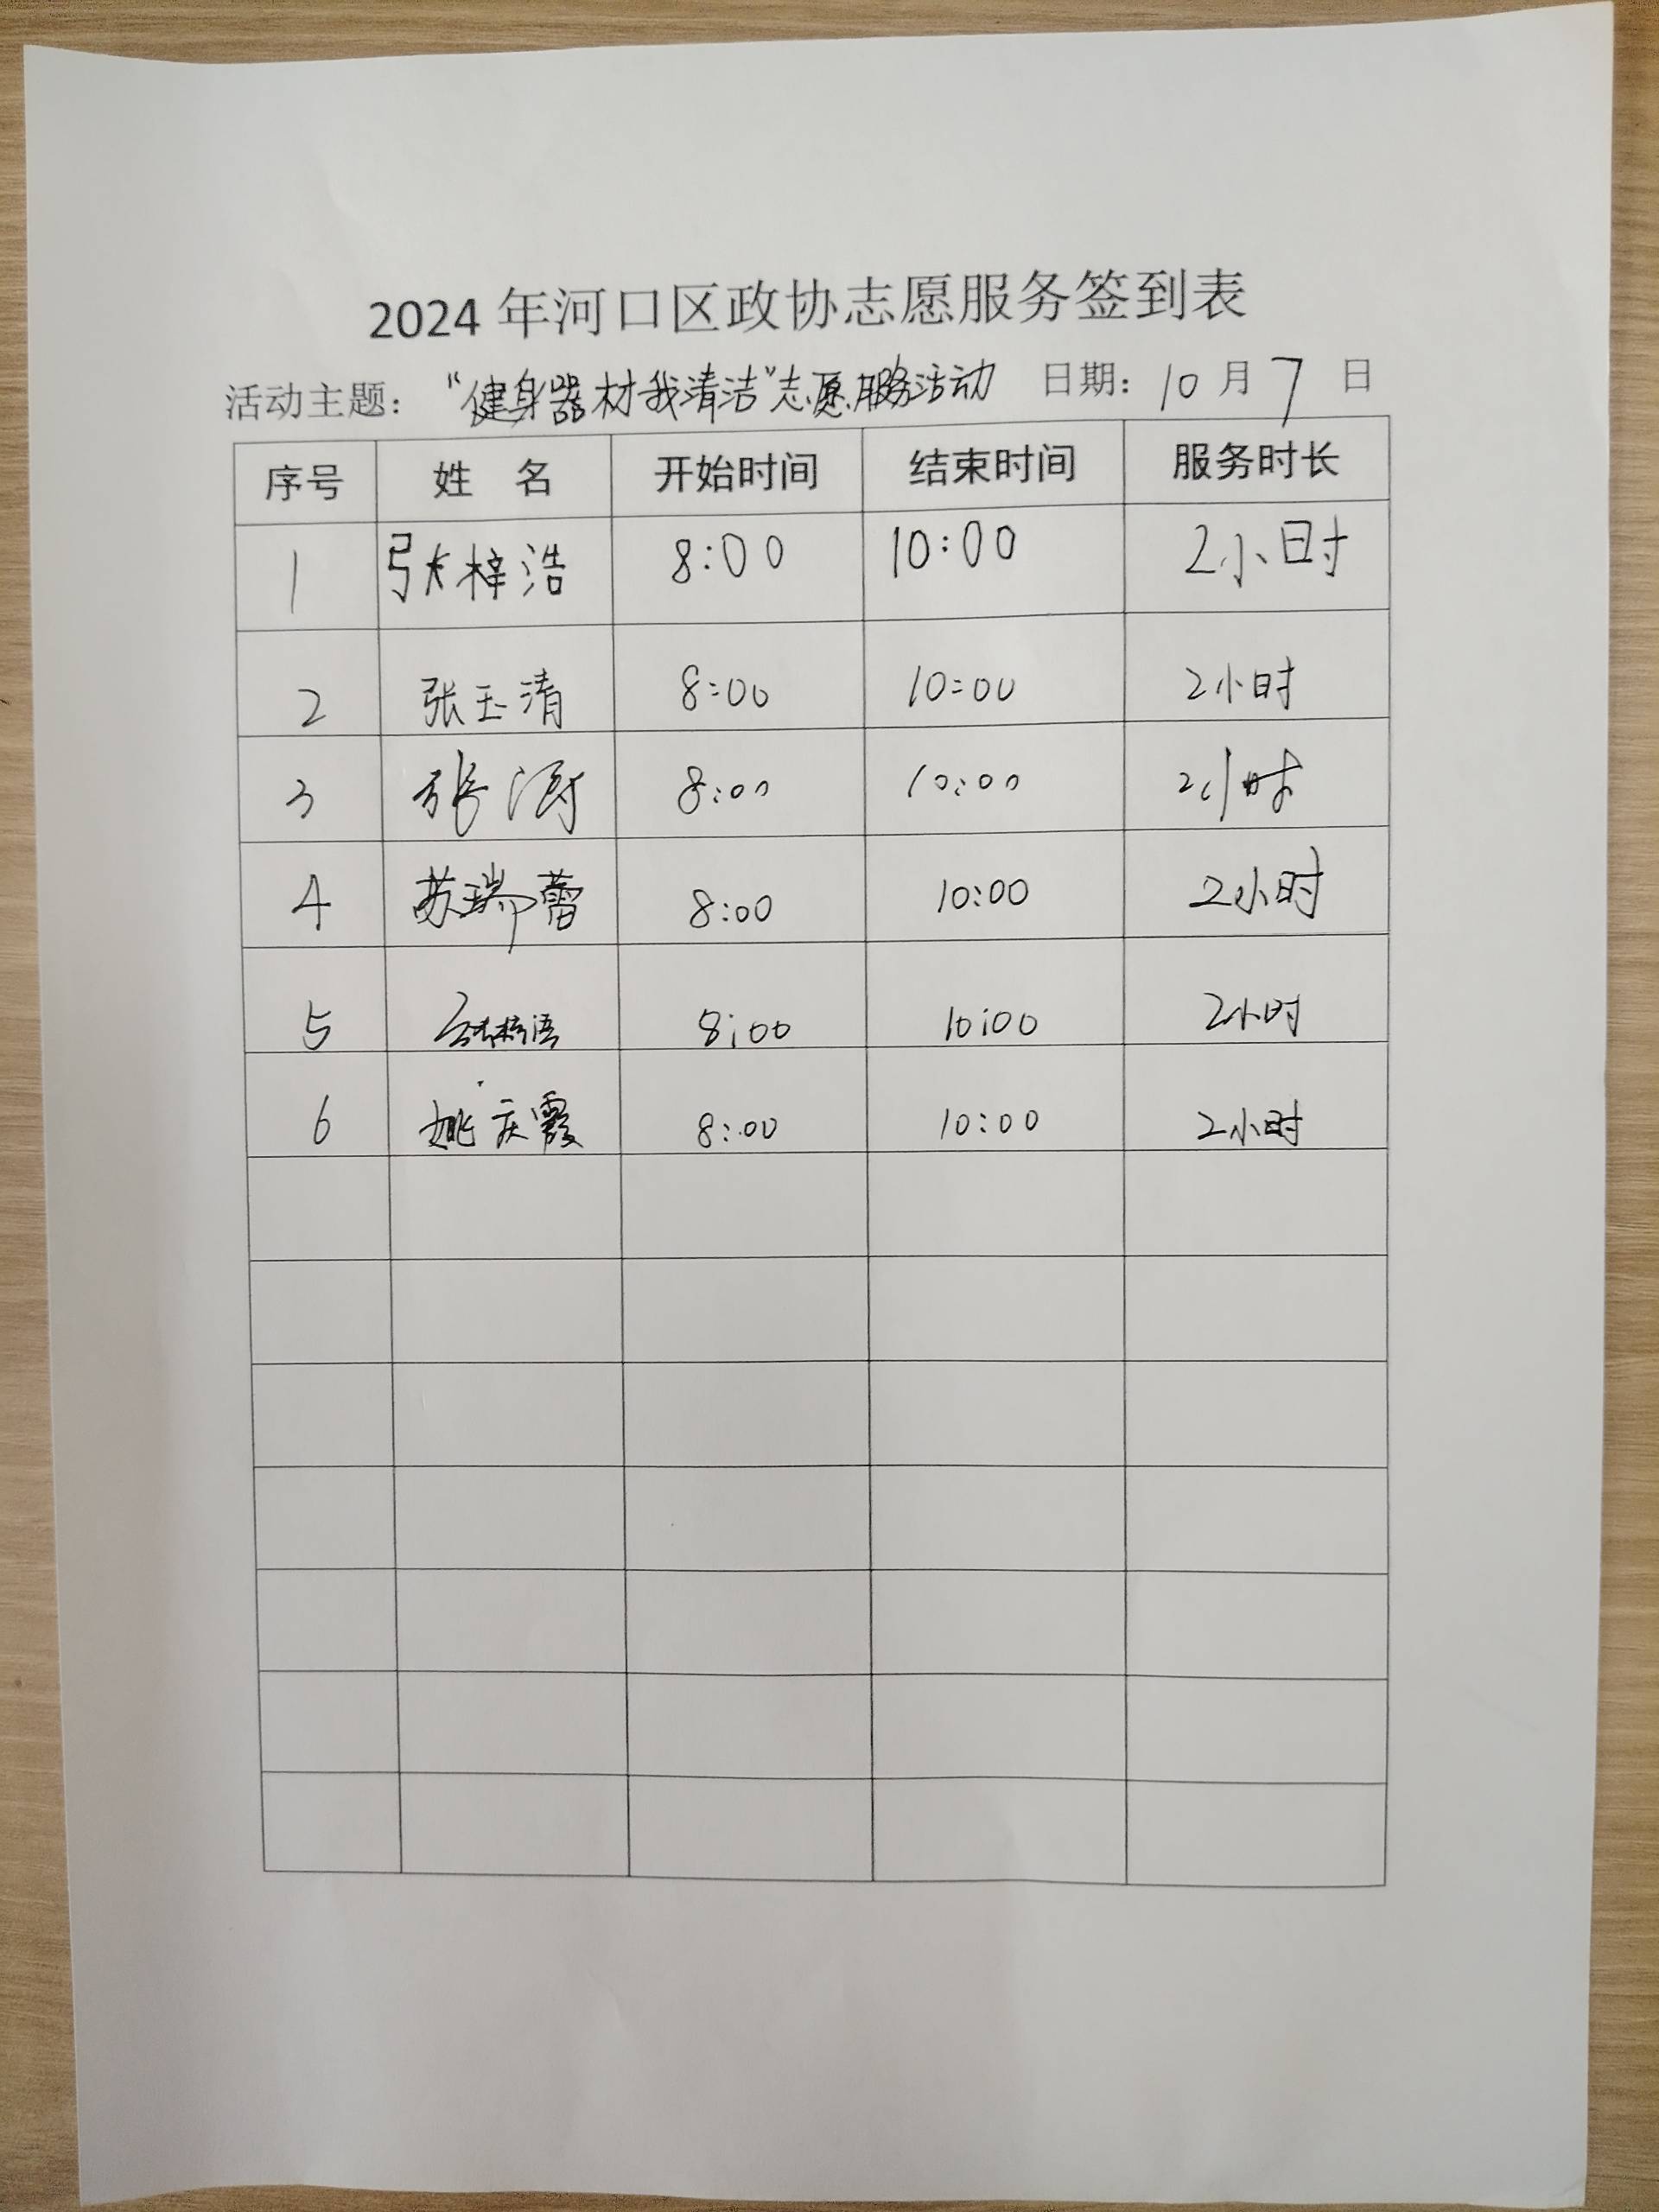 2024 年河口区政协志愿服务签到表
活动主题: "健身器材我清洁"志愿服务活动 日期: 10 月 7 日
序号 姓 名 开始时间 结束时间 服务时长
1 张梓浩 8:00 10:00 2小时
2 张玉清 8:00 10:00 2小时
3 张涛 8:00 10:00 2小时
4 苏瑞蕾 8:00 10:00 2小时
5 8:00 10:00 2小时
6 姚庆霞 8:00 10:00 2小时